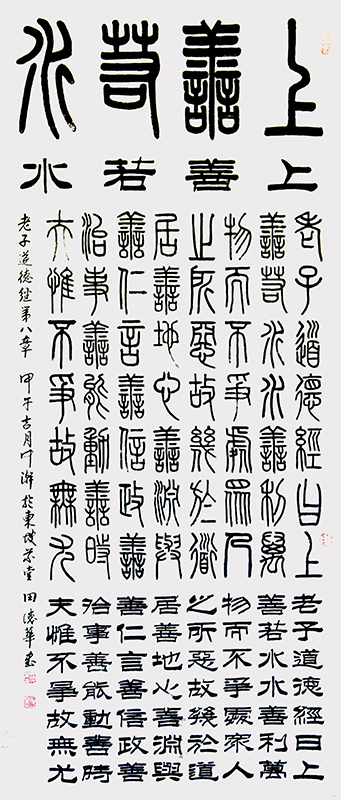 上善若水
上善若水
老子道德經曰上
善若水水善利萬
物而不爭處眾人
之所惡故幾於道
居善地心善淵與
善仁言善信政善
治事善能動善時
夫惟不爭故無尤
老子道德經曰上
善若水水善利萬
物而不爭處眾人
之所惡故幾於道
居善地心善淵與
善仁言善信政善
治事善能動善時
夫惟不爭故無尤
老子道德經第八章 甲午吉月中澣於東坡堂 田遠華書